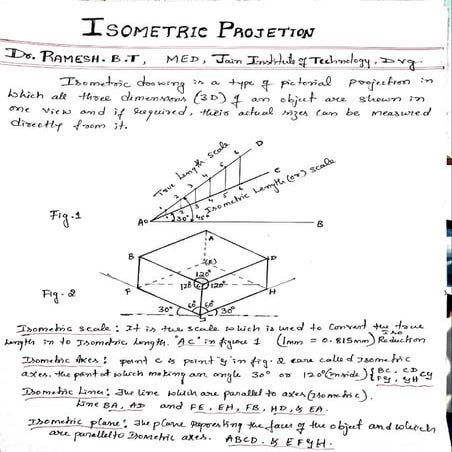 ISOMETRIC PROJETION
Dr. RAMESH.B.T, MED, Jain Institute of Technology, Dvg.
Isometric drowing is a type of pictorial projection in
which all three dimensions (3D) of an object are shown in
one view and if required, their actual sizes can be measured
directly from it.
True Length scale
D
C
Isometric Length (or) Scale
1 2 3 4 5 6
1 2 3 4 5 6
Fig.1
A0
30°
45°
B
A
B
(E)
D
120°
120°
C
120°
F
H
Fig. 2
60°
60°
30°
G
30°
Isometric scale: It is the scale which is used to convert the true
Length in to Isometric Length. "AC" in figure 1 (1mm = 0.815mm) iso Reduction
Isometric Axes: point C & point G in fig. 2 are called Isometric
axes. the point at which making an angle 30° or 120° (inside) {BC, CD, CG
FG, GH}
Isometric Lines: The line which are parallel to axes (Isometric).
Line BA, AD and FE, EH, FB, HD, & EA.
Isometric plane: The plane representing the faces of the object and which
are parallel to Isometric axes. ABCD & EFGH.